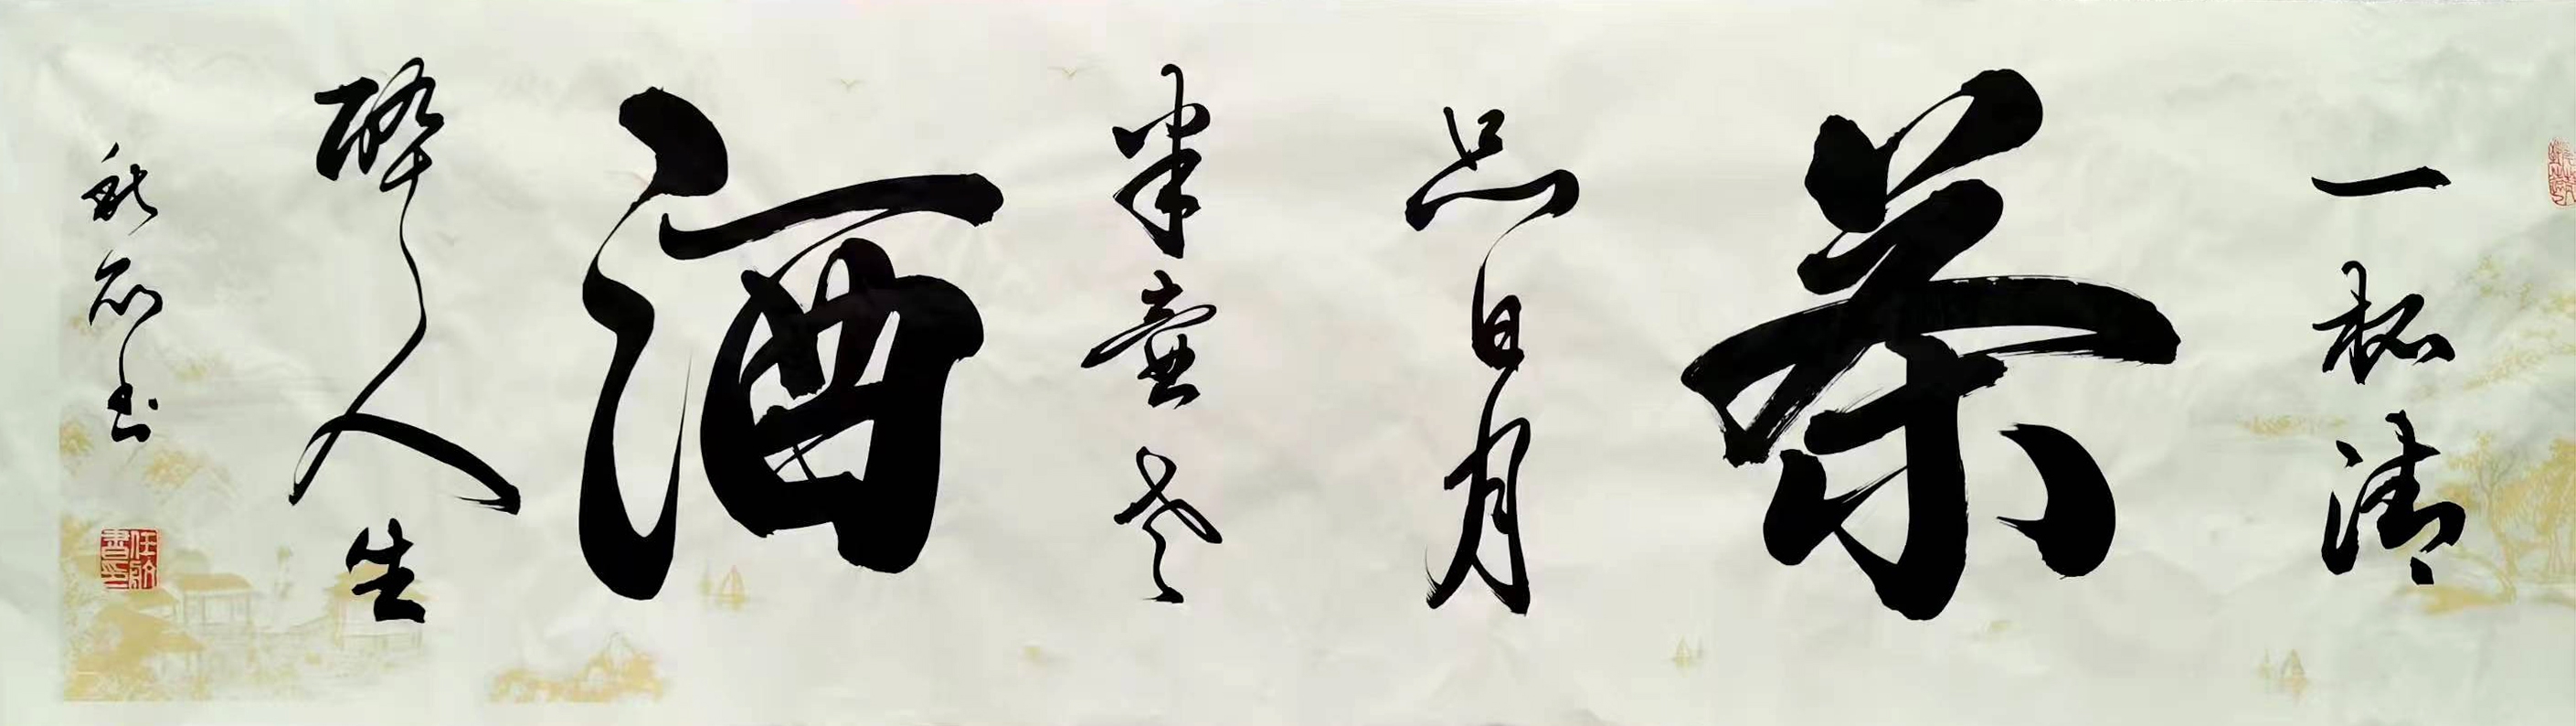 一杯清
茶
品日月
半壶老
酒
醉人生
书